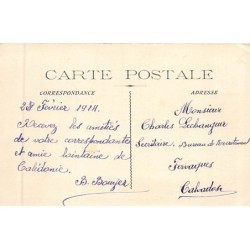 CARTE POSTALE
CORRESPONDANCE
28 Février 1914.
Recevez les amitiés
de votre correspondante
et amie lointaine de
Calédonie
B. Bouyer
ADRESSE
Monsieur
Charles Lechangeur
Secrétaire Bureau de Recrutement
Fervaques
Calvados